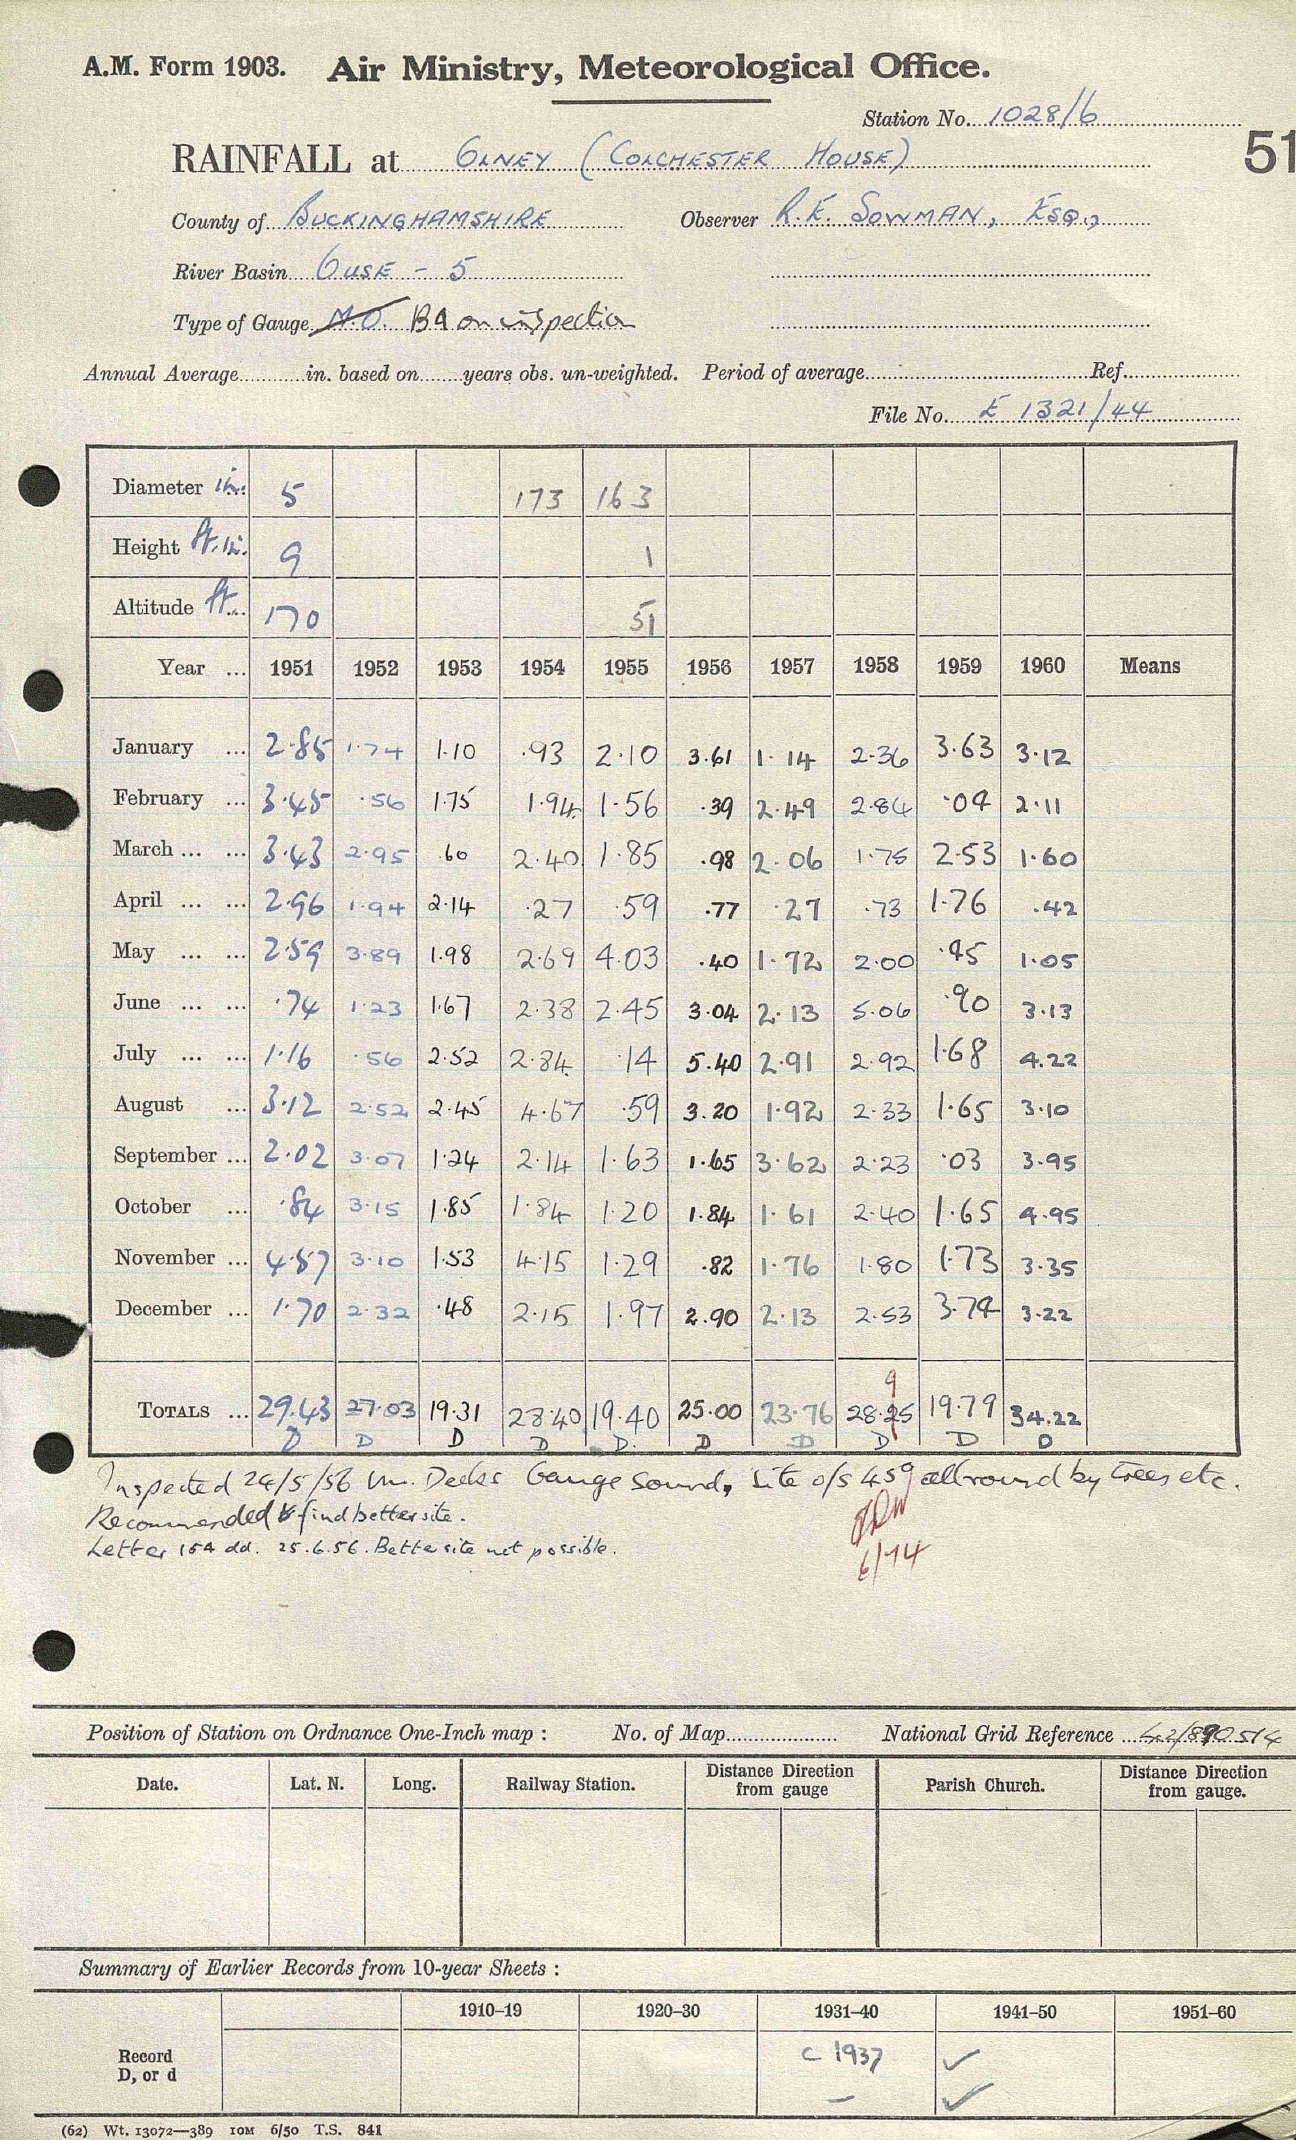 A.M. Form 1903. Air Ministry, Meteorological Office.
Station No. 1028/6
51
RAINFALL at OLNEY (COLCHESTER HOUSE)
County of BUCKINGHAMSHIRE Observer R.E. SOWMAN, ESQ.,
River Basin OUSE - 5
Type of Gauge M.O. B4 on inspection
Annual Average in. based on years obs. un-weighted. Period of average Ref.
File No. E 1321/44
Diameter in. 5 173 163
Height ft. in. 9 1
Altitude ft. 170 51
Year ... 1951 1952 1953 1954 1955 1956 1957 1958 1959 1960 Means
January ... 2.85 1.74 1.10 .93 2.10 3.61 1.14 2.36 3.63 3.12
February ... 3.45 .56 1.75 1.94 1.56 .39 2.49 2.84 .04 2.11
March ... ... 3.43 2.95 .60 2.40 1.85 .98 2.06 1.75 2.53 1.60
April ... ... 2.96 1.94 2.14 .27 .59 .77 .27 .73 1.76 .42
May ... ... 2.59 3.89 1.98 2.69 4.03 .40 1.72 2.00 .45 1.05
June ... ... .74 1.23 1.67 2.38 2.45 3.04 2.13 5.06 .90 3.13
July ... ... 1.16 .56 2.52 2.84 .14 5.40 2.91 2.92 1.68 4.22
August ... 3.12 2.52 2.45 4.67 .59 3.20 1.92 2.33 1.65 3.10
September ... 2.02 3.07 1.24 2.14 1.63 1.65 3.62 2.23 .03 3.95
October ... .84 3.15 1.85 1.84 1.20 1.84 1.61 2.40 1.65 4.95
November ... 4.57 3.10 1.53 4.15 1.29 .82 1.76 1.80 1.73 3.35
December ... 1.70 2.32 .48 2.15 1.97 2.90 2.13 2.53 3.74 3.22
9
TOTALS ... 29.43 27.03 19.31 28.40 19.40 25.00 23.76 28.25 19.79 34.22
D D D D D. D D D D D
Inspected 24/5/56 Gauge sound, site o/s 45° all round by trees etc.
Recommended to find better site.
Letter 154 dd. 25.6.56. Better site not possible.
6/74
Position of Station on Ordnance One-Inch map : No. of Map National Grid Reference 42/890514
Date. Lat. N. Long. Railway Station. Distance Direction from gauge Parish Church. Distance Direction from gauge.
Summary of Earlier Records from 10-year Sheets :
1910–19 1920–30 1931–40 1941–50 1951–60
Record c 1937 ✓
D, or d – ✓
(62) Wt. 13072—389 10M 6/50 T.S. 841